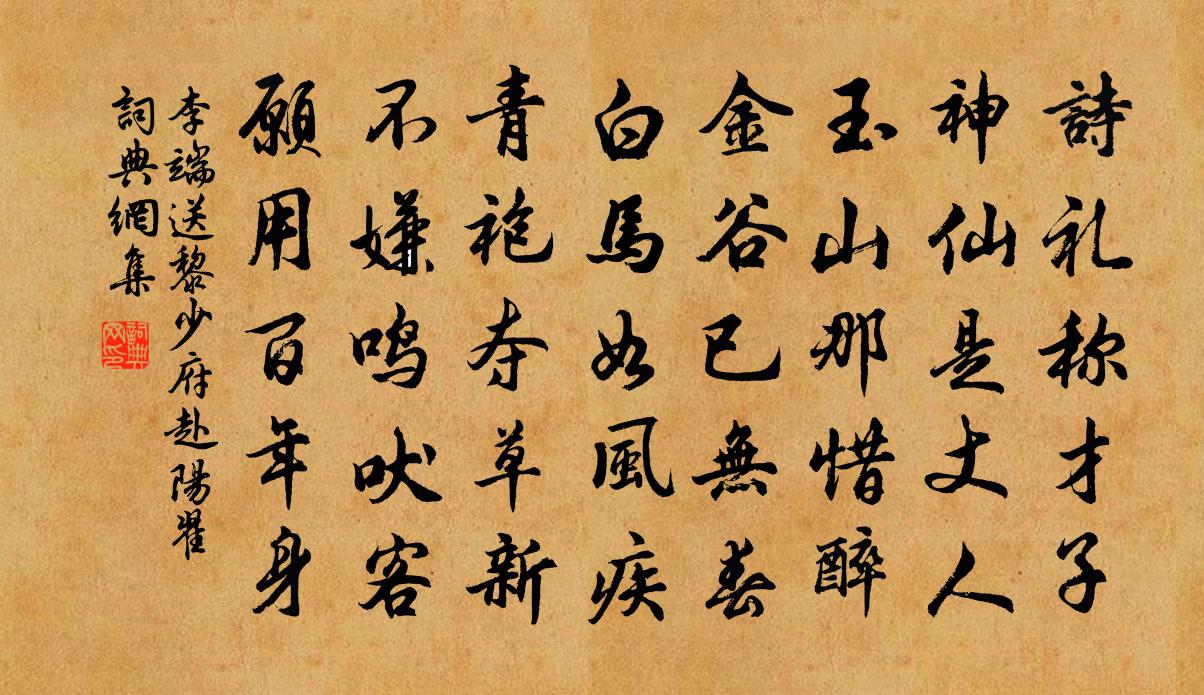 詩礼称才子
神仙是丈人
玉山那惜醉
金谷已無春
白馬如風疾
青袍夺草新
不嫌鳴吠客
願用百年身
李端送黎少府赴陽翟
詞典網集
詞典网印